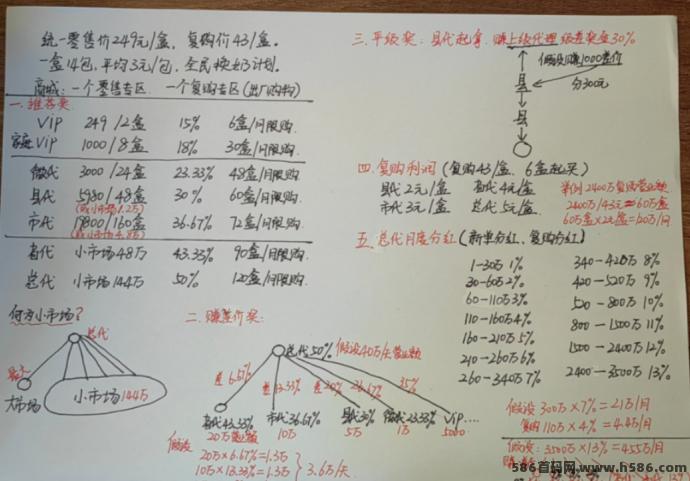 统一零售价249元/盒，复购价43/盒。
一盒14包，平均3元/包，全民换奶计划。
商城：一个零售专区 一个复购专区(出厂价购)
一.推荐奖
VIP 249/2盒 15% 6盒/月限购
家庭VIP 1000/8盒 18% 30盒/月限购
微代 3000/24盒 23.33% 48盒/月限购
县代 5980/48盒 30% 60盒/月限购
(或小市场1.2万)
市代 19800/160盒 36.67% 72盒/月限购
(或小市场4.8万)
省代 小市场48万 43.33% 90盒/月限购
总代 小市场144万 50% 120盒/月限购
何为小市场？
总代
大市场
小市场144万
二.赚差价奖：
总代50% 假设40万/天营业额
差6.67% 差13.33% 差20% 26.67% 35%
省代43.33% 市代36.67% 县代30% 微代23.33% VIP....
20万营业额 10万 5万 1万 5000
假设
20万×6.67%=1.3万
10万×13.33%=1.3万
3.6万/天
三.平级奖：县代起拿，赚上级代理级差奖金30%
假设赚1000差价
县
分300元
县
四.复购利润(复购43/盒，6盒起买)
县代2元/盒 省代4元/盒
市代3元/盒 总代5元/盒
举例2400万复购营业额
2400万/43元=60万盒
60万盒×2元/盒=120万/月
五.总代月度分红(新单分红、复购分红)
1-30万 1%
30-60万 2%
60-110万 3%
110-160万 4%
160-210万 5%
210-260万 6%
260-340万 7%
340-420万 8%
420-520万 9%
520-800万 10%
800-1500万 11%
1500-2400万 12%
2400-3500万 13%
假设300万×7%=21万/月
复购110万×4%=4.4万/月
假设：3500万×13%=455万/月
586首码网www.h586.com